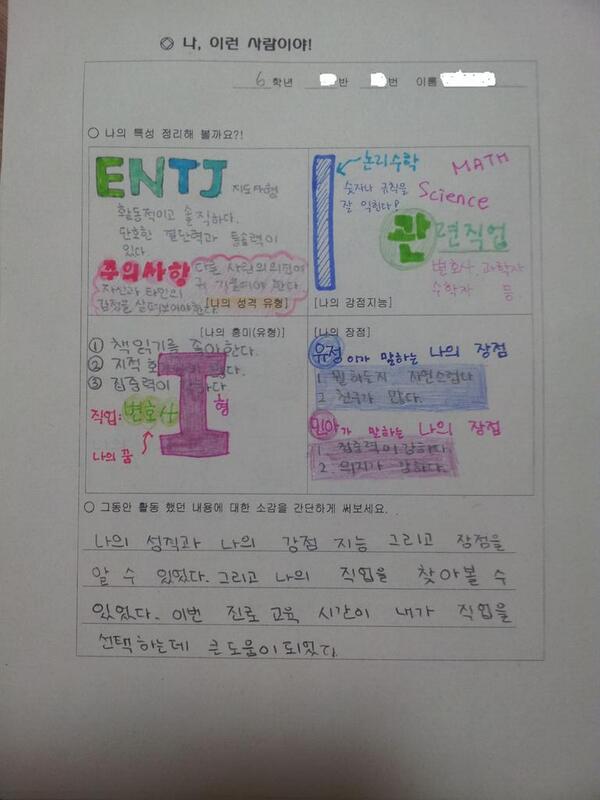 ◎ 나, 이런 사람이야!
6학년 반 번 이름
○ 나의 특성 정리해 볼까요?!
ENTJ 지도자형
활동적이고 솔직하다.
단호한 결단력과 통솔력이
있다.
주의사항 다른 사람의 의견에
귀 기울여야 한다.
자신과 타인의
감정을 살펴보아야한다.
[나의 성격 유형]
논리수학
숫자나 규칙을
잘 익힌다
MATH
Science
관련직업
변호사, 과학자
수학자 등.
[나의 강점지능]
[나의 흥미(유형)]
① 책 읽기를 좋아한다.
② 지적
③ 집중력이
I형
직업: 변호사
나의 꿈
[나의 장점]
유정이가 말하는 나의 장점
1. 뭘 하든지 자연스럽다
2. 친구가 많다.
민아가 말하는 나의 장점
1. 집중력이 강하다.
2. 의지가 강하다.
○ 그동안 활동 했던 내용에 대한 소감을 간단하게 써보세요.
나의 성격과 나의 강점 지능 그리고 장점을
알 수 있었다. 그리고 나의 직업을 찾아볼 수
있었다. 이번 진로 교육 시간이 내가 직업을
선택하는데 큰 도움이 되었다.